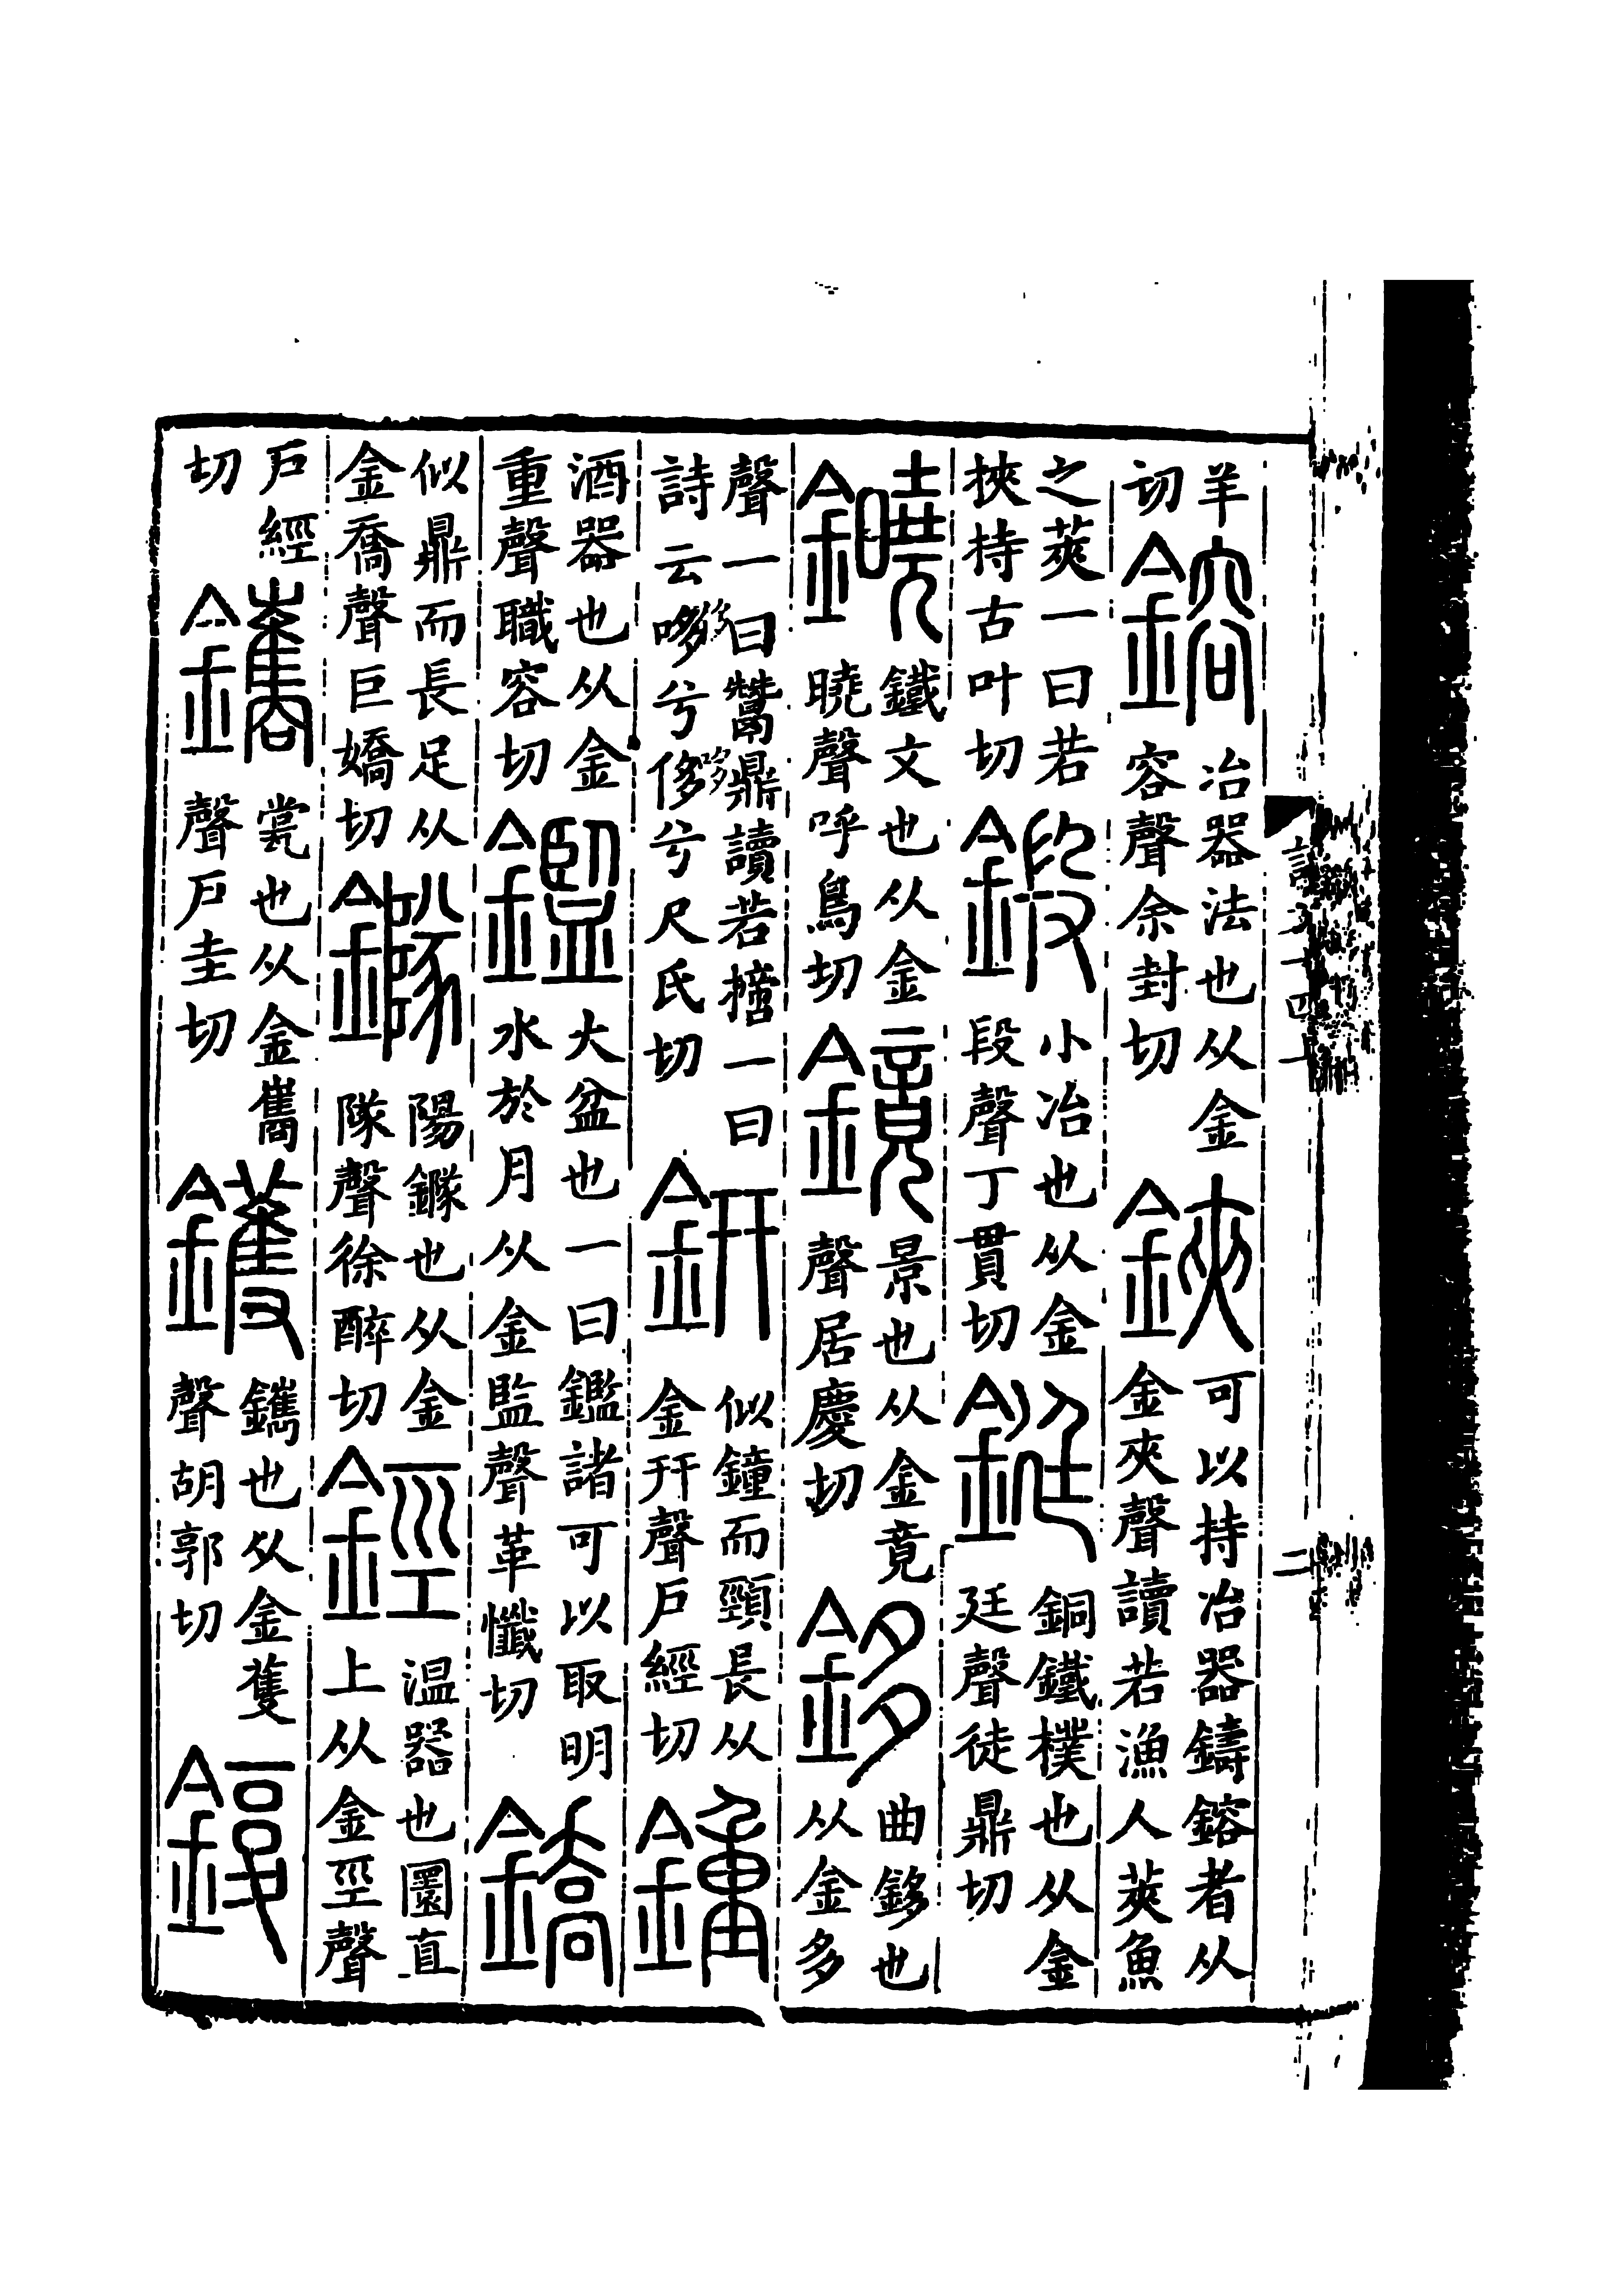 說文十四上
二
羊切鎔冶器法也从金容聲余封切鋏可以持冶器鑄鎔者从金夾聲讀若漁人莢魚
之莢一曰若挾持古叶切鍛小冶也从金段聲丁貫切鋌銅鐵樸也从金廷聲徒鼎切
䥵鐵文也从金曉聲呼鳥切鏡景也从金竟聲居慶切鉹曲鉹也从金多
聲一曰鬵鼎讀若擿一曰詩云哆兮侈兮尺氏切鈃似鐘而頸長从金幵聲戶經切鍾
酒器也从金重聲職容切鑑大盆也一曰鑑諸可以取明水於月从金監聲革懺切鐈
似鼎而長足从金喬聲巨嬌切鐆陽鐆也从金隊聲徐醉切鋞温器也圜直上从金巠聲
戶經切鑴瓽也从金巂聲戶圭切鑊鑴也从金蒦聲胡郭切鍑